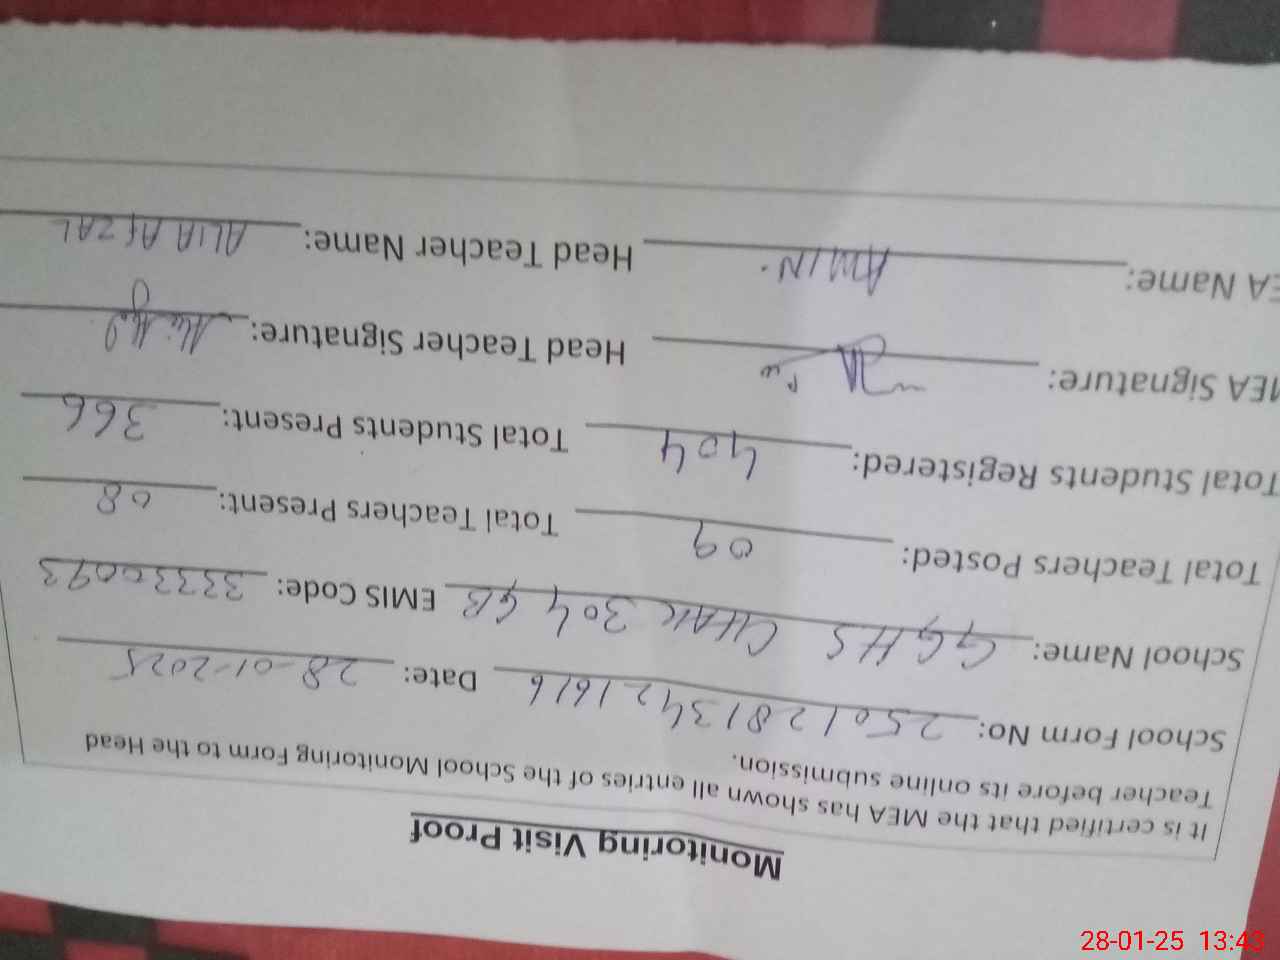 Monitoring Visit Proof
It is certified that the MEA has shown all entries of the School Monitoring Form to the Head
Teacher before its online submission.
School Form No: 25012813421616 Date: 28-01-2025
School Name: GGHS CHAK 304 GB EMIS Code: 33330093
Total Teachers Posted: 09 Total Teachers Present: 08
Total Students Registered: 404 Total Students Present: 366
MEA Signature: Head Teacher Signature:
EA Name: AMIN. Head Teacher Name: ALIA AFZAL
28-01-25 13:43